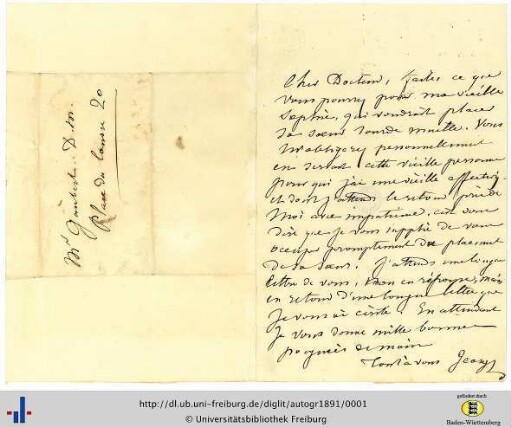 Mr Gaubert D.m.
Place du Caire 20
Cher Docteur, faites ce que
vous pourrez pour ma vieille
Sophie, qui voudrait placer
sa sœur sourde muette. Vous
m'obligerez personnellement
en servant cette vieille personne
pour qui j'ai une vieille affection,
et dont j'attends le retour près de
moi avec impatience, c'est vous
dire que je vous supplie de vous
occuper promptement du placement
de sa sœur. J'attends une longue
lettre de vous, non en réponse, mais
en retour d'une longue lettre que
je vous ai écrite. En attendant
je vous donne mille bonnes
poignées de main
Tout à vous George
http://dl.ub.uni-freiburg.de/diglit/autogr1891/0001
© Universitätsbibliothek Freiburg
gefördert durch
Baden-Württemberg